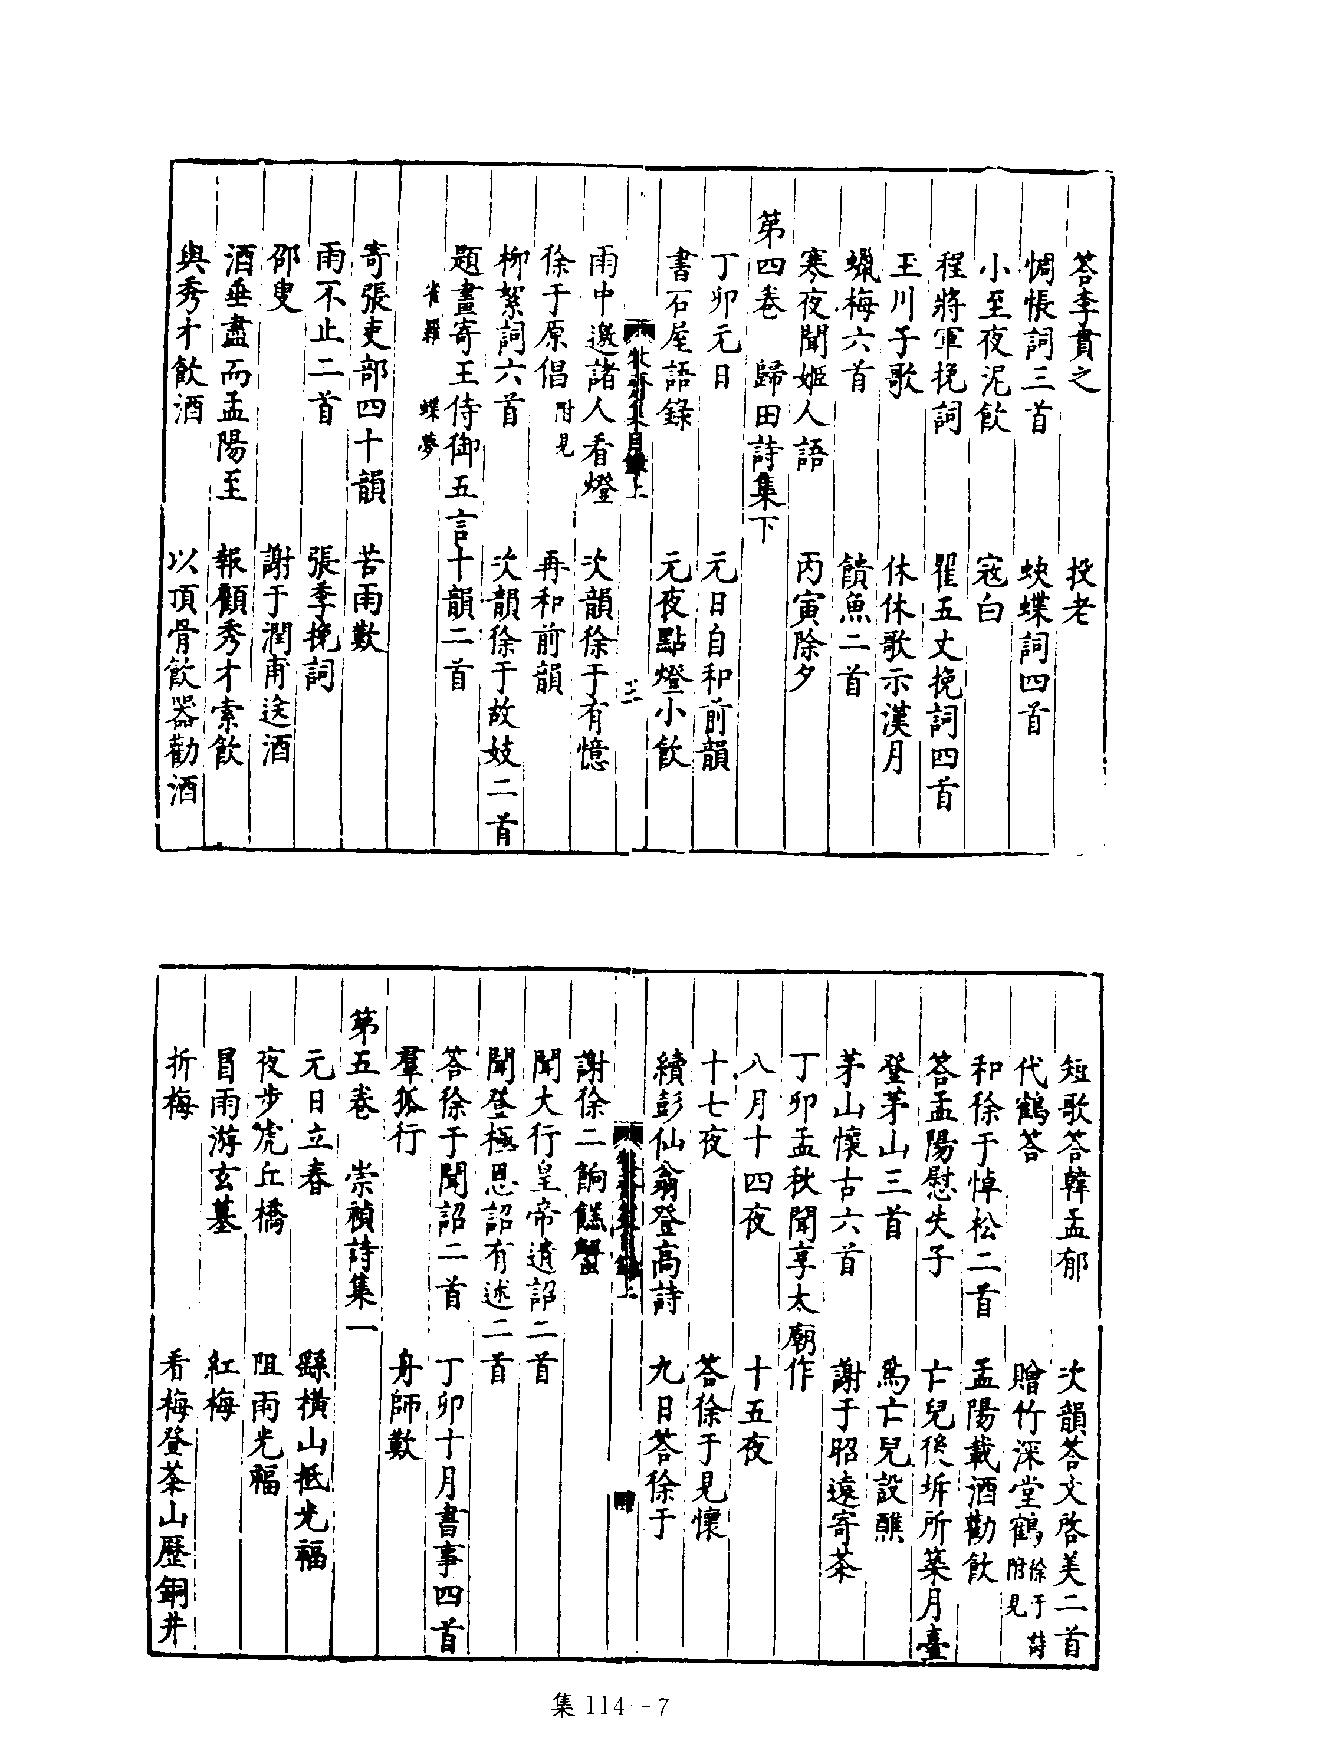 答李貫之　投老
惆悵詞三首　蛺蝶詞四首
小至夜泥飲　寇白
程將軍挽詞　瞿五丈挽詞四首
玉川子歌　休休歌示漢月
蠟梅六首　饋魚二首
寒夜聞姬人語　丙寅除夕
第四卷　歸田詩集下
丁卯元日　元日自和前韻
書石屋語錄　元夜點燈小飲
牧齋集目錄上　三
雨中邀諸人看燈　次韻徐于有憶
徐于原倡附見　再和前韻
柳絮詞六首　次韻徐于故妓二首
題畫寄王侍御五言十韻二首
雀羅　蝶夢
寄張吏部四十韻　苦雨歎
雨不止二首　張季挽詞
邵叟　謝于潤甫送酒
酒垂盡而孟陽至　報顧秀才索飲
與秀才飲酒　以頂骨飲器勸酒
短歌答韓孟郁　次韻答文啓美二首
代鶴答　贈竹深堂鶴徐于詩附見
和徐于悼松二首　孟陽載酒勸飲
答孟陽慰失子　亡兒後坼所築月臺
登茅山三首　為亡兒設醮
茅山懷古六首　謝于昭遠寄茶
丁卯孟秋聞享太廟作
八月十四夜　十五夜
十七夜　答徐于見懷
續彭仙翁登高詩　九日答徐于
牧齋集目錄上　四
謝徐二餉餻蟹
聞大行皇帝遺詔二首
聞登極恩詔有述二首
答徐于聞詔二首　丁卯十月書事四首
羣狐行　舟師歎
第五卷　崇禎詩集一
元日立春　繇橫山抵光福
夜步虎丘橋　阻雨光福
冒雨游玄墓　紅梅
折梅　看梅登茶山歷銅井
集 114 - 7